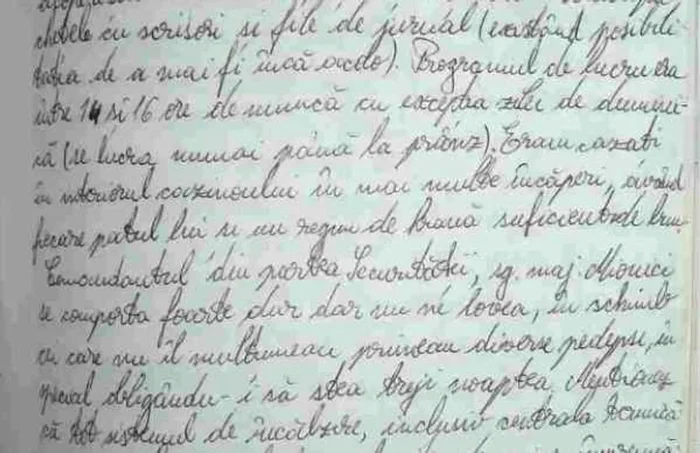 chetele cu scrisori si file de jurnal (existând posibili-
tatea de a mai fi încă acolo). Programul de lucru era
între 14 si 16 ore de muncă cu excepția zilei de dumini-
că (se lucra numai până la prânz). Eram cazati
în interiorul cazinoului în mai multe încăperi, având
fiecare patul lui si un regim de hrană suficient de bun.
Comandantul din partea Securității, sg. maj. Mionici
se comporta foarte dur dar nu ne lovea, în schimb
cei care nu îl multumeau primeau diverse pedepse, în
special obligându-i să stea treji noaptea. Mentionez
că tot sistemul de încălzire, inclusiv centrala termică